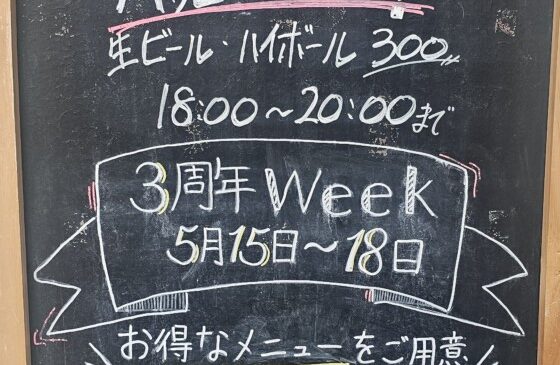 生ビール・ハイボール 300
18:00〜20:00まで
3周年Week
5月15日〜18日
お得なメニューをご用意